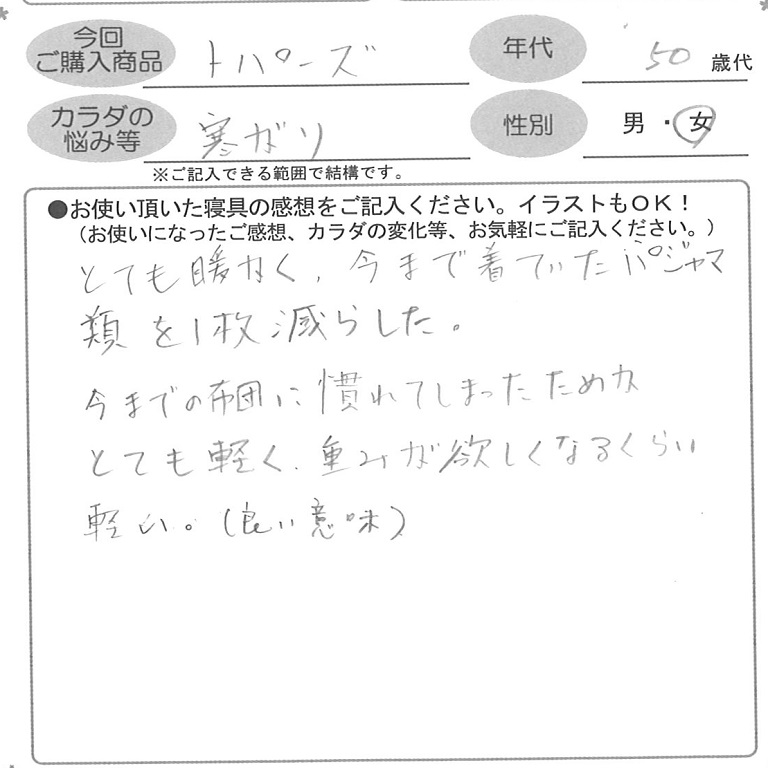 今回
ご購入商品
トパーズ
年代
50 歳代
カラダの
悩み等
寒がり
性別
男・女
※ご記入できる範囲で結構です。
●お使い頂いた寝具の感想をご記入ください。イラストもOK！
（お使いになったご感想、カラダの変化等、お気軽にご記入ください。）
とても暖かく、今まで着ていたパジャマ
類を1枚減らした。
今までの布団に慣れてしまったためか
とても軽く、重みが欲しくなるくらい
軽い。（良い意味）